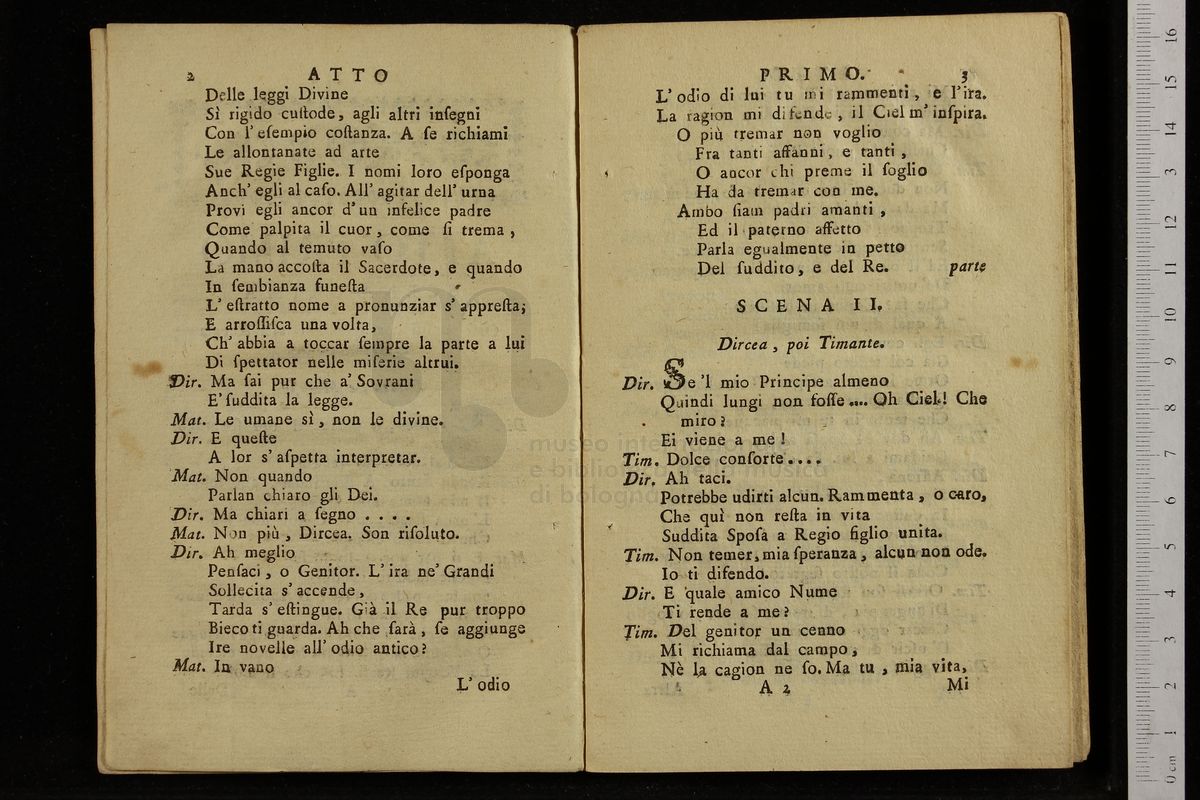 2 ATTO
Delle leggi Divine
Sì rigido cuſtode, agli altri inſegni
Con l' eſempio coſtanza. A ſe richiami
Le allontanate ad arte
Sue Regie Figlie. I nomi loro eſponga
Anch' egli al caſo. All' agitar dell' urna
Provi egli ancor d' un infelice padre
Come palpita il cuor, come ſi trema,
Quando al temuto vaſo
La mano accoſta il Sacerdote, e quando
In ſembianza funeſta
L' eſtratto nome a pronunziar s' appreſta;
E arroſſiſca una volta,
Ch' abbia a toccar ſempre la parte a lui
Di ſpettator nelle miſerie altrui.
Dir. Ma ſai pur che a' Sovrani
E' ſuddita la legge.
Mat. Le umane sì, non le divine.
Dir. E queſte
A lor s' aſpetta interpretar.
Mat. Non quando
Parlan chiaro gli Dei.
Dir. Ma chiari a ſegno . . . .
Mat. Non più, Dircea. Son riſoluto.
Dir. Ah meglio
Penſaci, o Genitor. L' ira ne' Grandi
Sollecita s' accende,
Tarda s' eſtingue. Già il Re pur troppo
Bieco ti guarda. Ah che ſarà, ſe aggiunge
Ire novelle all' odio antico?
Mat. In vano
L' odio
PRIMO. 3
L' odio di lui tu mi rammenti, e l'ira.
La ragion mi difende, il Ciel m' inſpira.
O più tremar non voglio
Fra tanti affanni, e tanti,
O ancor chi preme il ſoglio
Ha da tremar con me.
Ambo ſiam padri amanti,
Ed il paterno affetto
Parla egualmente in petto
Del ſuddito, e del Re. parte
SCENA II.
Dircea, poi Timante.
Dir. Se 'l mio Principe almeno
Quindi lungi non foſſe .... Oh Ciel! Che
miro?
Ei viene a me!
Tim. Dolce conſorte . . . .
Dir. Ah taci.
Potrebbe udirti alcun. Rammenta, o caro,
Che quì non reſta in vita
Suddita Spoſa a Regio figlio unita.
Tim. Non temer, mia ſperanza, alcun non ode.
Io ti difendo.
Dir. E quale amico Nume
Ti rende a me?
Tim. Del genitor un cenno
Mi richiama dal campo,
Nè la cagion ne ſo. Ma tu, mia vita,
A 2 Mi